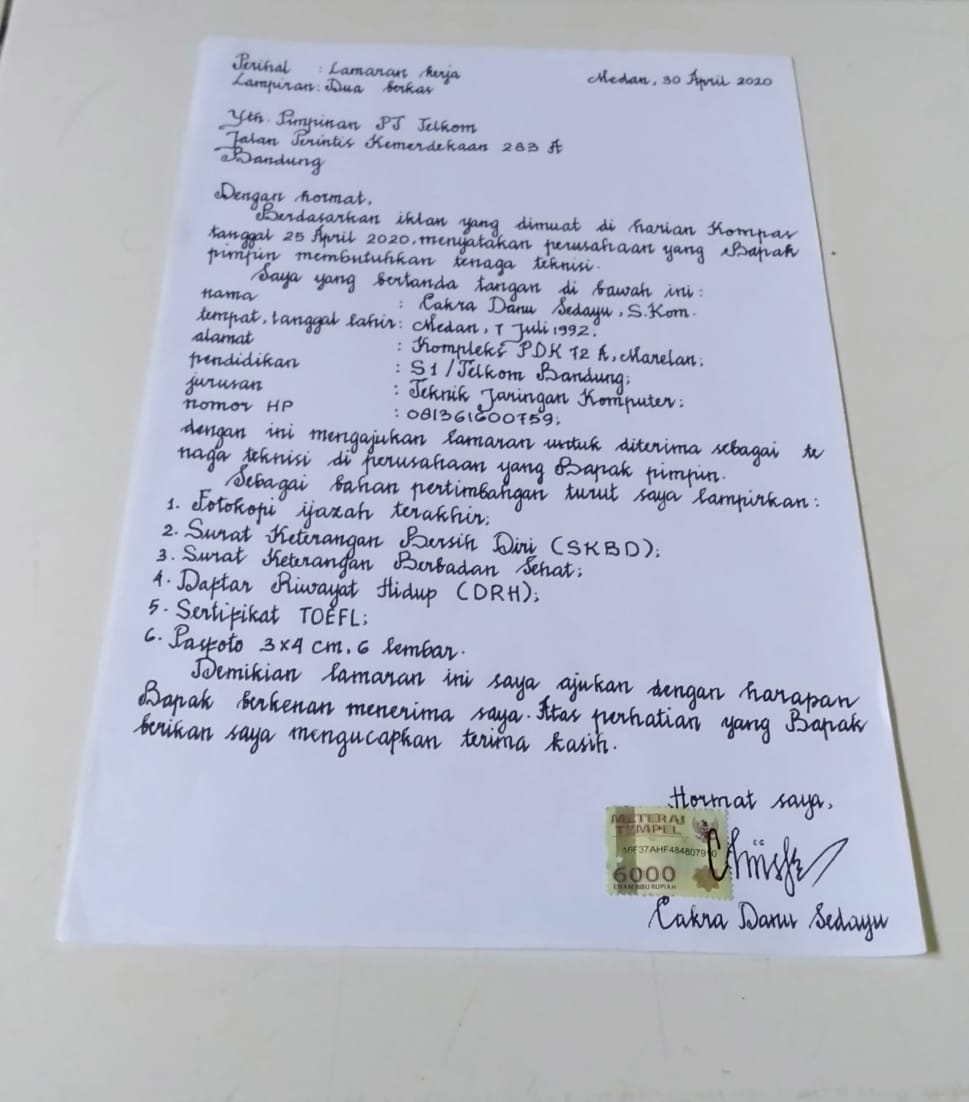 Perihal : Lamaran kerja
Medan, 30 April 2020
Lampiran : Dua berkas
Yth. Pimpinan PT Telkom
Jalan Perintis Kemerdekaan 283 A
Bandung
Dengan hormat,
Berdasarkan iklan yang dimuat di harian Kompas
tanggal 25 April 2020, menyatakan perusahaan yang Bapak
pimpin membutuhkan tenaga teknisi.
Saya yang bertanda tangan di bawah ini :
nama : Cakra Danu Sedayu, S.Kom.
tempat, tanggal lahir : Medan, 7 Juli 1992;
alamat : Kompleks PDK 72 A, Marelan;
pendidikan : S1 / Telkom Bandung;
jurusan : Teknik Jaringan Komputer;
nomor HP : 081361600759;
dengan ini mengajukan lamaran untuk diterima sebagai te
naga teknisi di perusahaan yang Bapak pimpin.
Sebagai bahan pertimbangan turut saya lampirkan :
1. Fotokopi ijazah terakhir;
2. Surat Keterangan Bersih Diri (SKBD);
3. Surat Keterangan Berbadan Sehat;
4. Daftar Riwayat Hidup (DRH);
5. Sertifikat TOEFL;
6. Pasfoto 3x4 cm, 6 lembar.
Demikian lamaran ini saya ajukan dengan harapan
Bapak berkenan menerima saya. Atas perhatian yang Bapak
berikan saya mengucapkan terima kasih.
Hormat saya,
METERAI
TEMPEL
6000
ENAM RIBU RUPIAH
Cakra Danu Sedayu